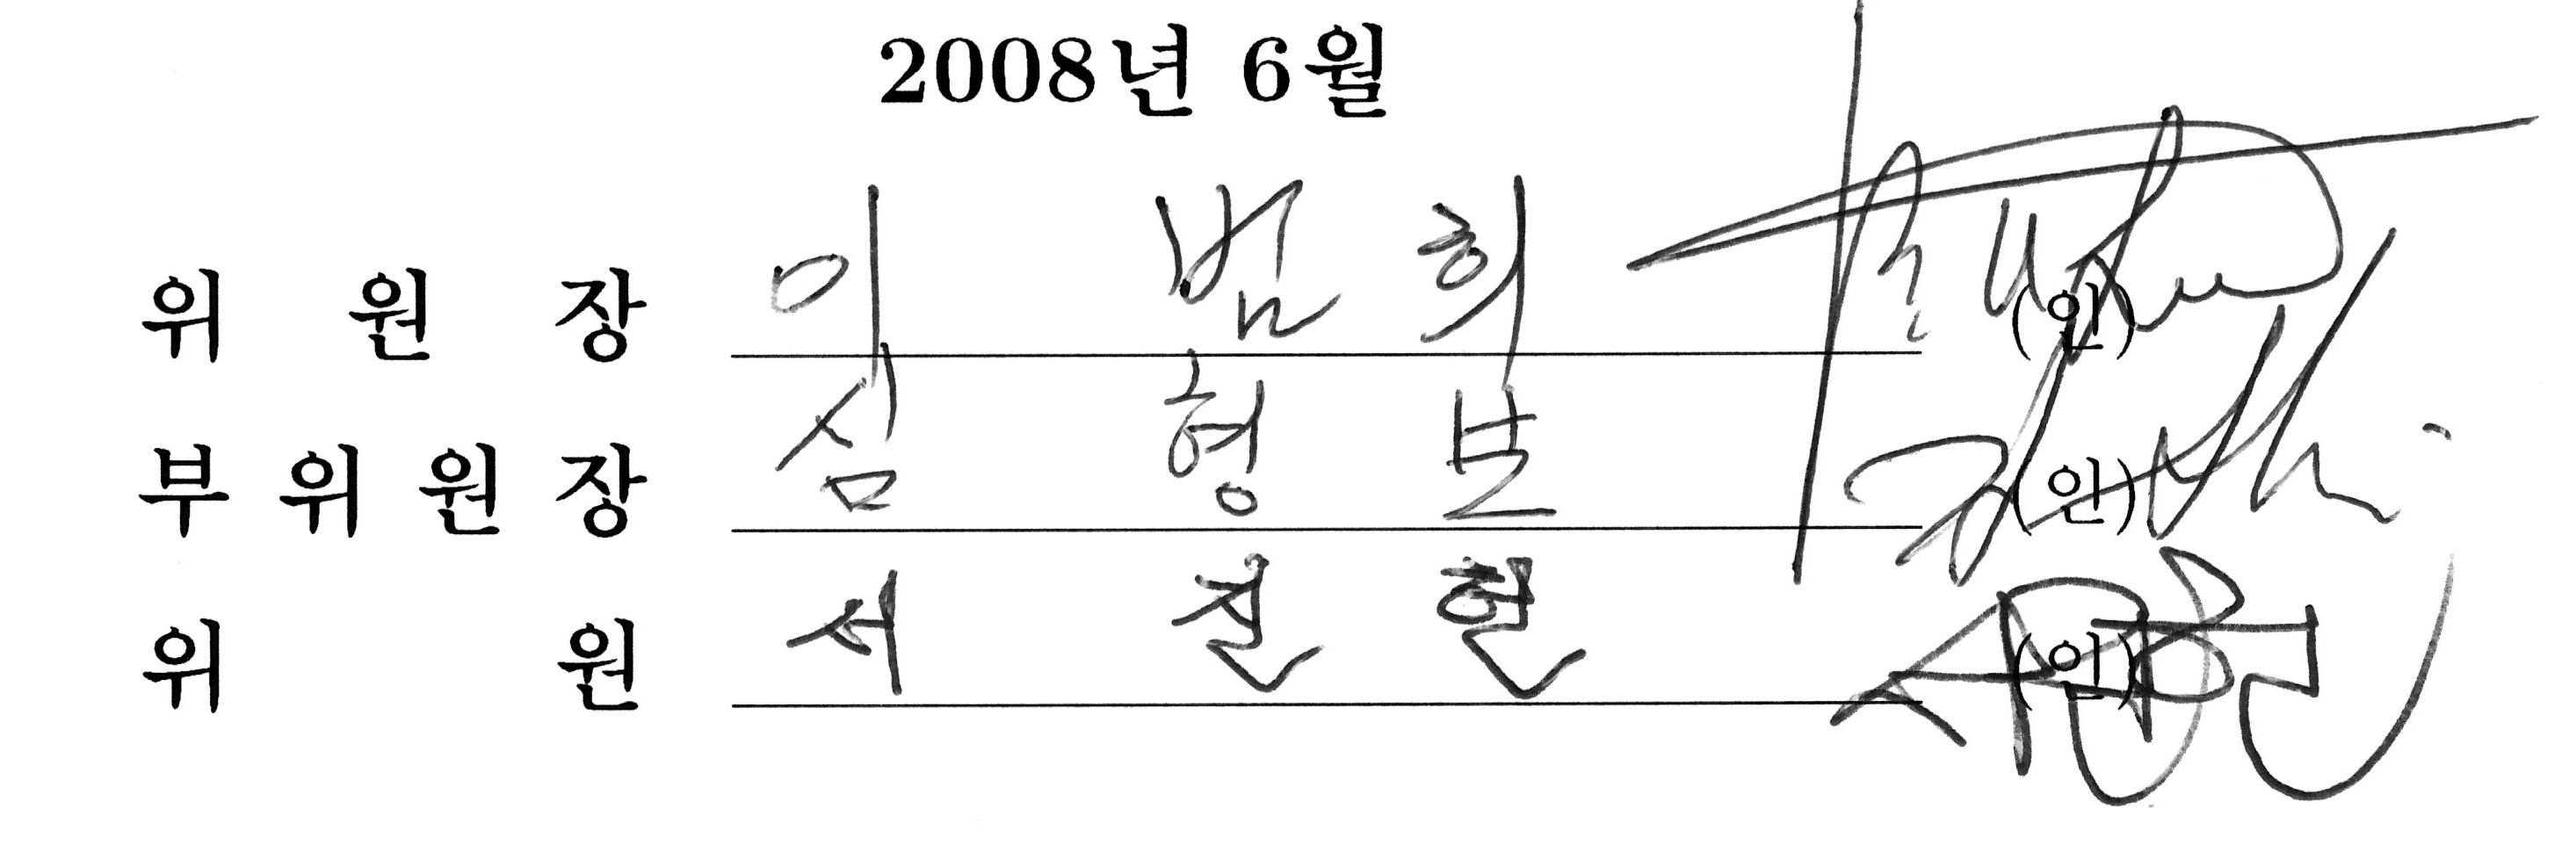 2008년 6월
위 원 장 이 범 희 (인)
부 위 원 장 심 형 보 (인)
위 원 서 진 헌 (인)